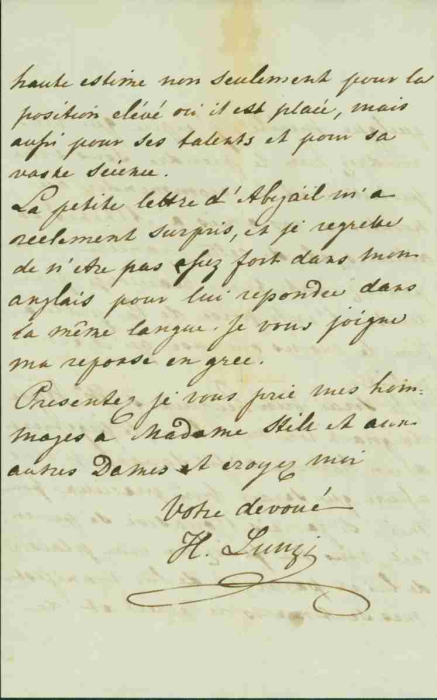 haute estime non seulement pour la
position elévé où il est placé, mais
aussi pour ses talents et pour sa
vaste science.
La petite lettre d'Abigaïl m'a
reelement surpris, et je regrette
de n'etre pas assez fort dans mon
anglais pour lui repondre dans
la même langue. Je vous joigne
ma reponse en grec.
Presentez je vous prie mes hom-
mages à Madame Hill et aux
autres Dames et croyez moi
Votre devoué
H. Lunzi